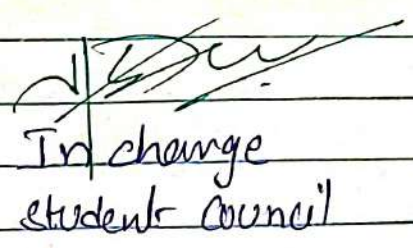 In charge
student Council